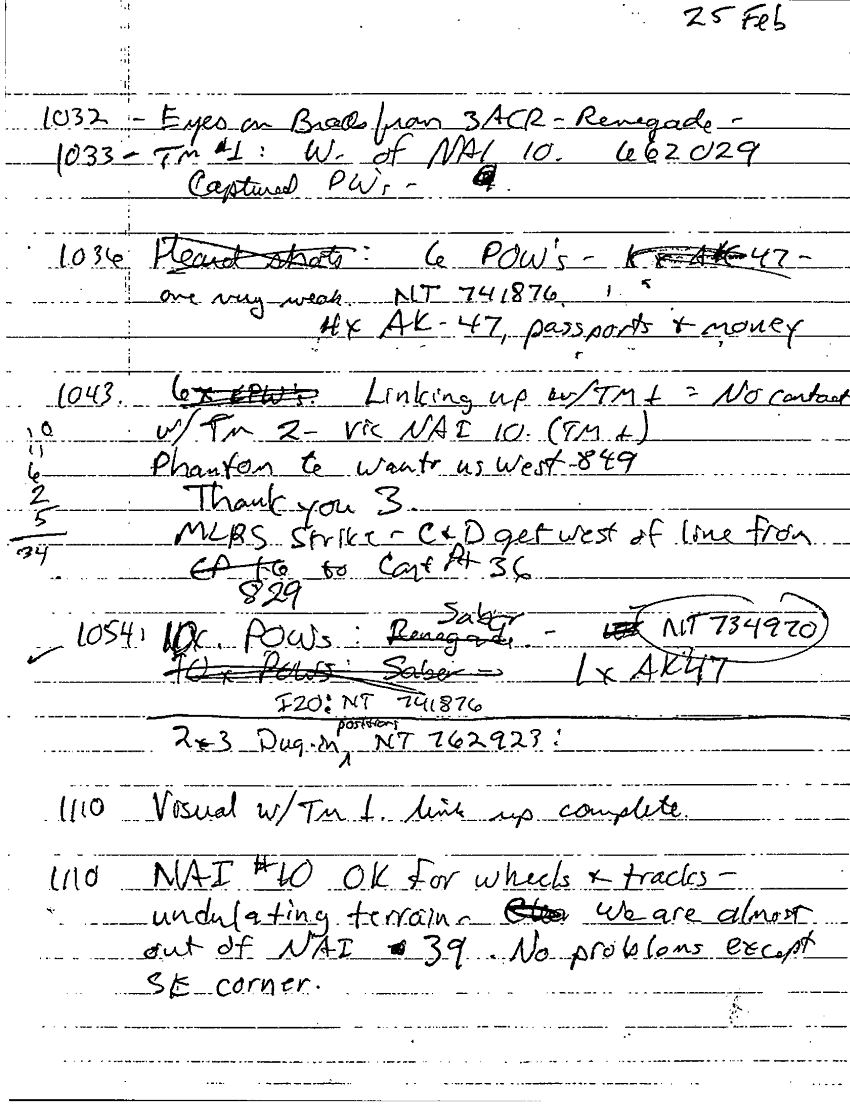 25 Feb
1032 - Eyes on Brads from 3ACR - Renegade -
1033 - Tm #1: W. of NAI 10. 662029
Captured PW's -
1036 Heard shots: 6 POW's - AK-47 -
one very weak. NT 741876.
4x AK-47, passports & money
1043. 6x EPW's. Linking up w/TM 1 = No contact
w/ Tm 2 - vic NAI 10. (TM 1)
10
11
6
2
5
34
Phantom 6 wants us west - 849
Thank you 3.
MLRS Strike - C&D get west of line from
CP 16 to Cont Pt 36
829
Saber
1054: 10x POWs: Renegade. - NT 734970
10x POWs: Saber - 1x AK47
I20: NT 741876
positions
2-3 Dug-in NT 762923:
1110 Visual w/Tm 1. link up complete.
1110 NAI #10 OK for wheels & tracks -
undulating terrain - We are almost
out of NAI 39. No problems except
SE corner.